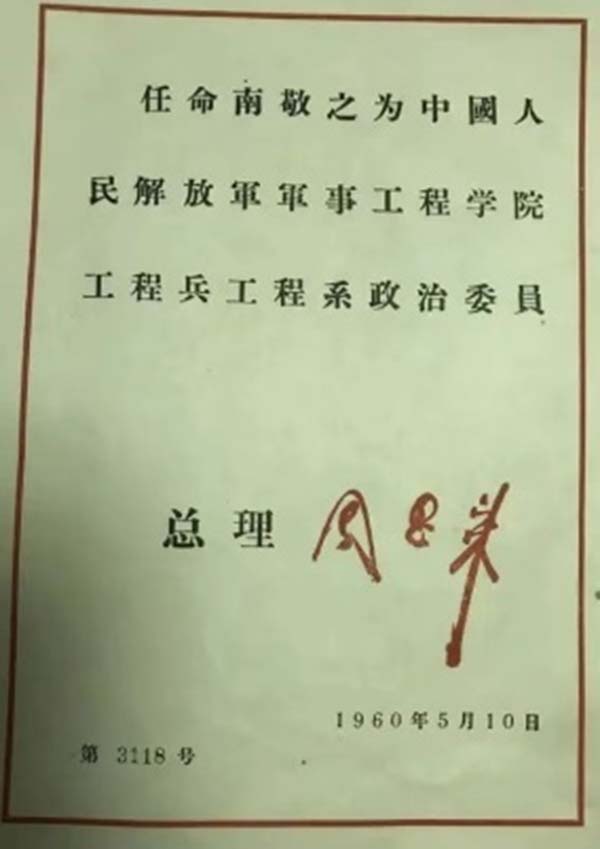 任命南敬之为中國人
民解放軍軍事工程学院
工程兵工程系政治委員
总理 周恩来
1960年5月10日
第 3118 号